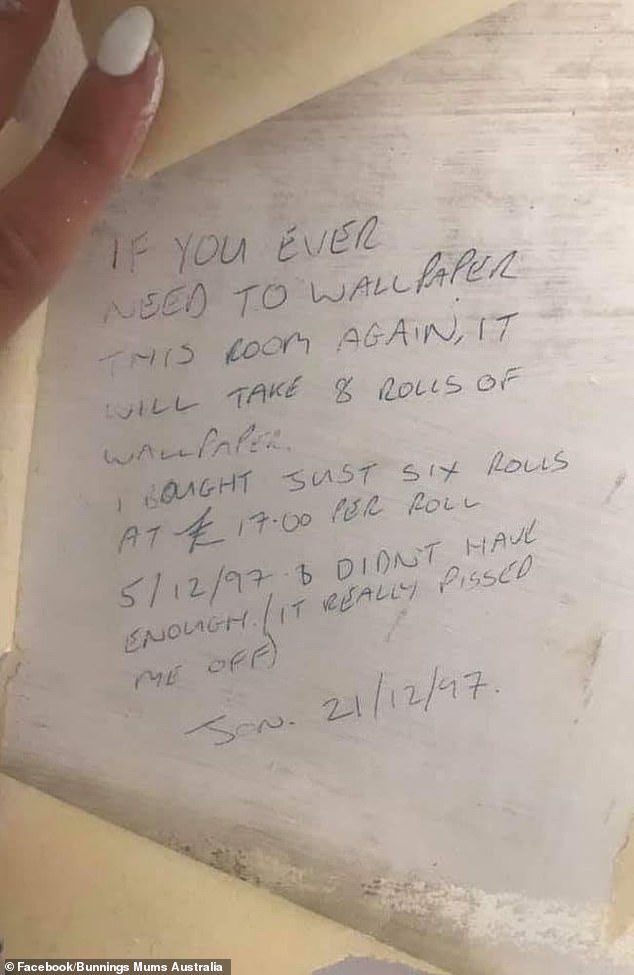 IF YOU EVER
NEED TO WALLPAPER
THIS ROOM AGAIN, IT
WILL TAKE 8 ROLLS OF
WALLPAPER.
I BOUGHT JUST SIX ROLLS
AT £17.00 PER ROLL
5/12/97 & DIDN'T HAVE
ENOUGH. (IT REALLY PISSED
ME OFF)
JON. 21/12/97.
© Facebook/Bunnings Mums Australia